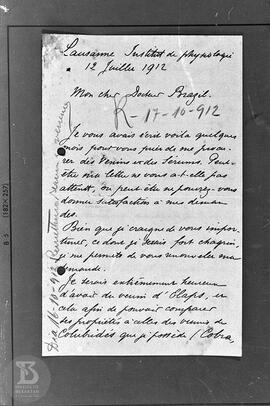 Lausanne Institut de physiologie
12 Juillet 1912
Mon cher Docteur Brazil.
R-17-10-912
Je vous avais écrit voilà quelques
mois pour vous prier de me procu-
rer des Venins et des Sérums. Peut-
être ma lettre ne vous a-t-elle pas
atteint, ou peut-être ne pouvez-vous
donner satisfaction à mes deman-
des.
Bien que je craigne de vous impor-
tuner, ce dont je serais fort chagrin,
je me permets de vous renouveler ma
demande.
Je serais extrêmement heureux
d'avoir du venin d'Elaps, et
cela afin de pouvoir comparer
ses propriétés à celles des venins de
Colubridés que je possède (Cobra,
Dia 16-10-912
B 5 (182×257)